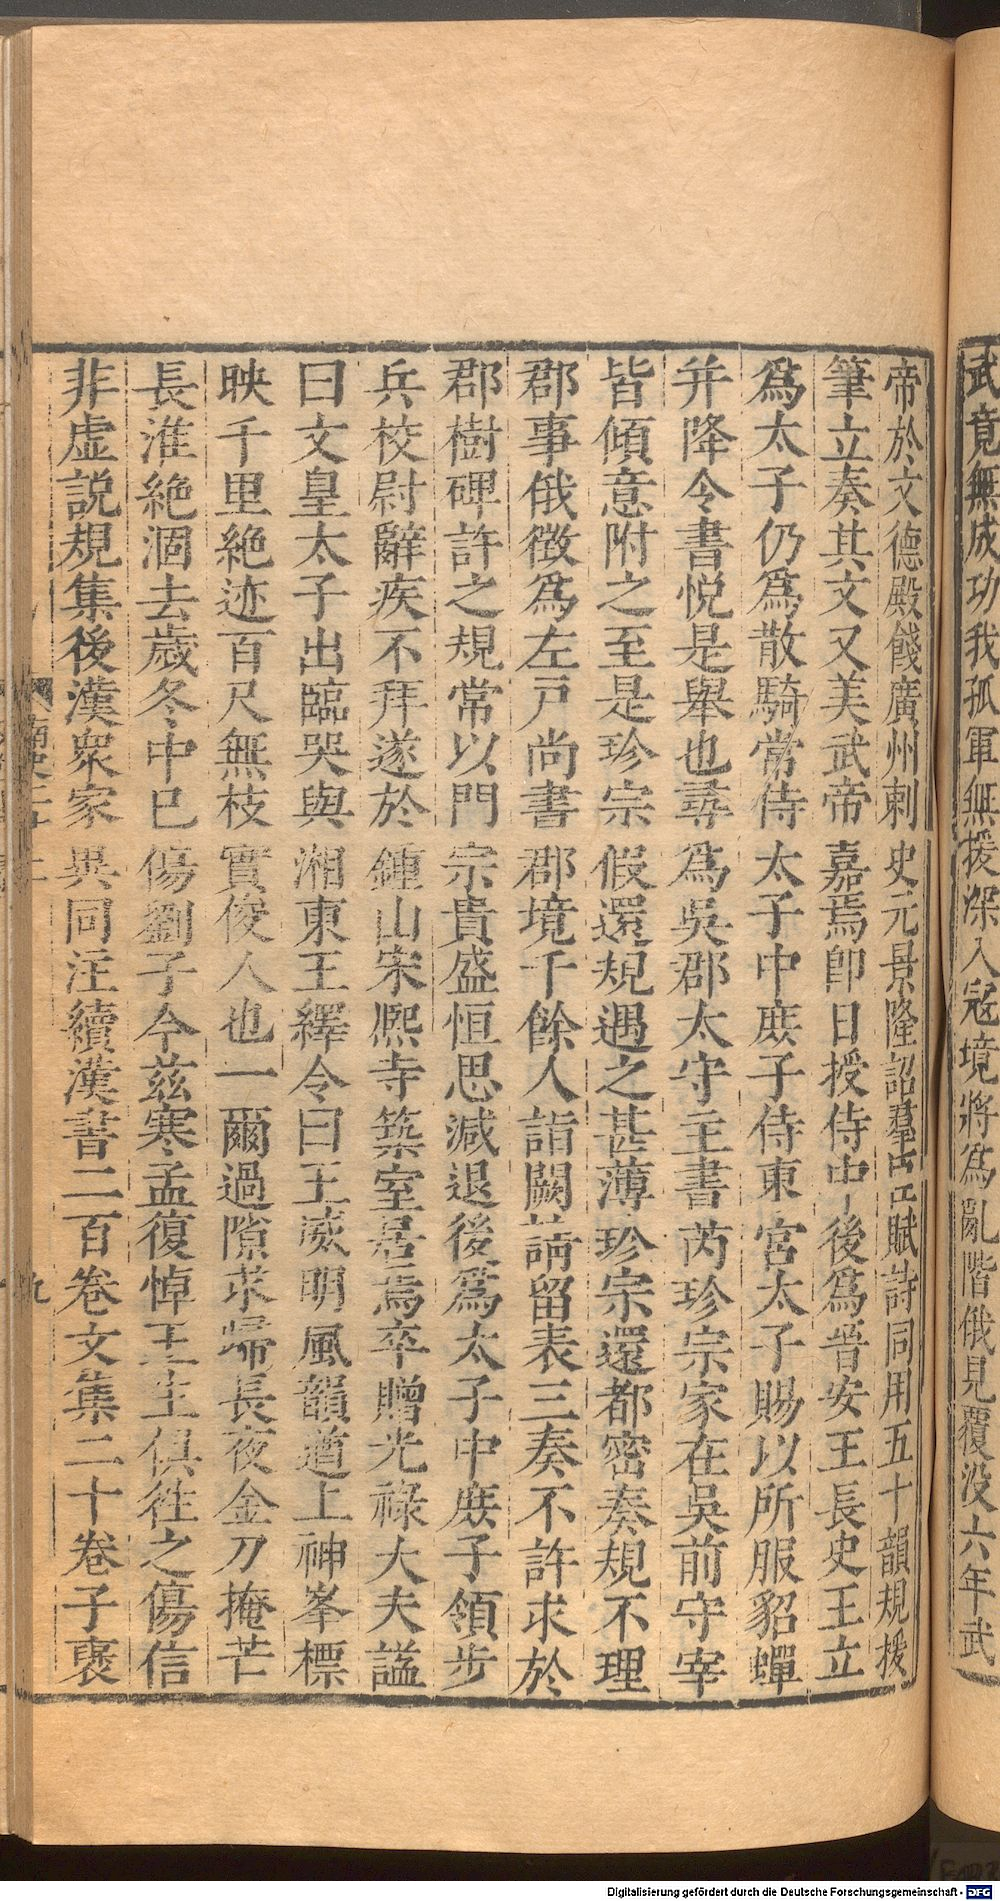 武竟無成功我孤軍無援深入寇境將為亂階俄見覆沒六年武
帝於文德殿餞廣州刺史元景隆詔羣臣賦詩同用五十韻規援
筆立奏其文又美武帝嘉焉卽日授侍中後爲晉安王長史王立
爲太子仍爲散騎常侍太子中庶子侍東宮太子賜以所服貂蟬
并降令書悅是舉也尋爲吳郡太守主書芮珍宗家在吳前守宰
皆傾意附之至是珍宗假還規遇之甚薄珍宗還都密奏規不理
郡事俄徵爲左戸尚書郡境千餘人詣闕請留表三奏不許求於
郡樹碑許之規常以門宗貴盛恒思減退後爲太子中庶子領步
兵校尉辭疾不拜遂於鍾山宋熈寺築室居焉卒贈光祿大夫謚
曰文皇太子出臨哭與湘東王繹令曰王威明風韻遒上神峯標
映千里絶迹百尺無枝實俊人也一爾過隙永歸長夜金刀掩芒
長淮絶涸去歲冬中已傷劉子今茲寒孟復悼王生俱往之傷信
非虛説規集後漢衆家異同注續漢書二百卷文集二十卷子褒
九
Digitalisierung gefördert durch die Deutsche Forschungsgemeinschaft - DFG